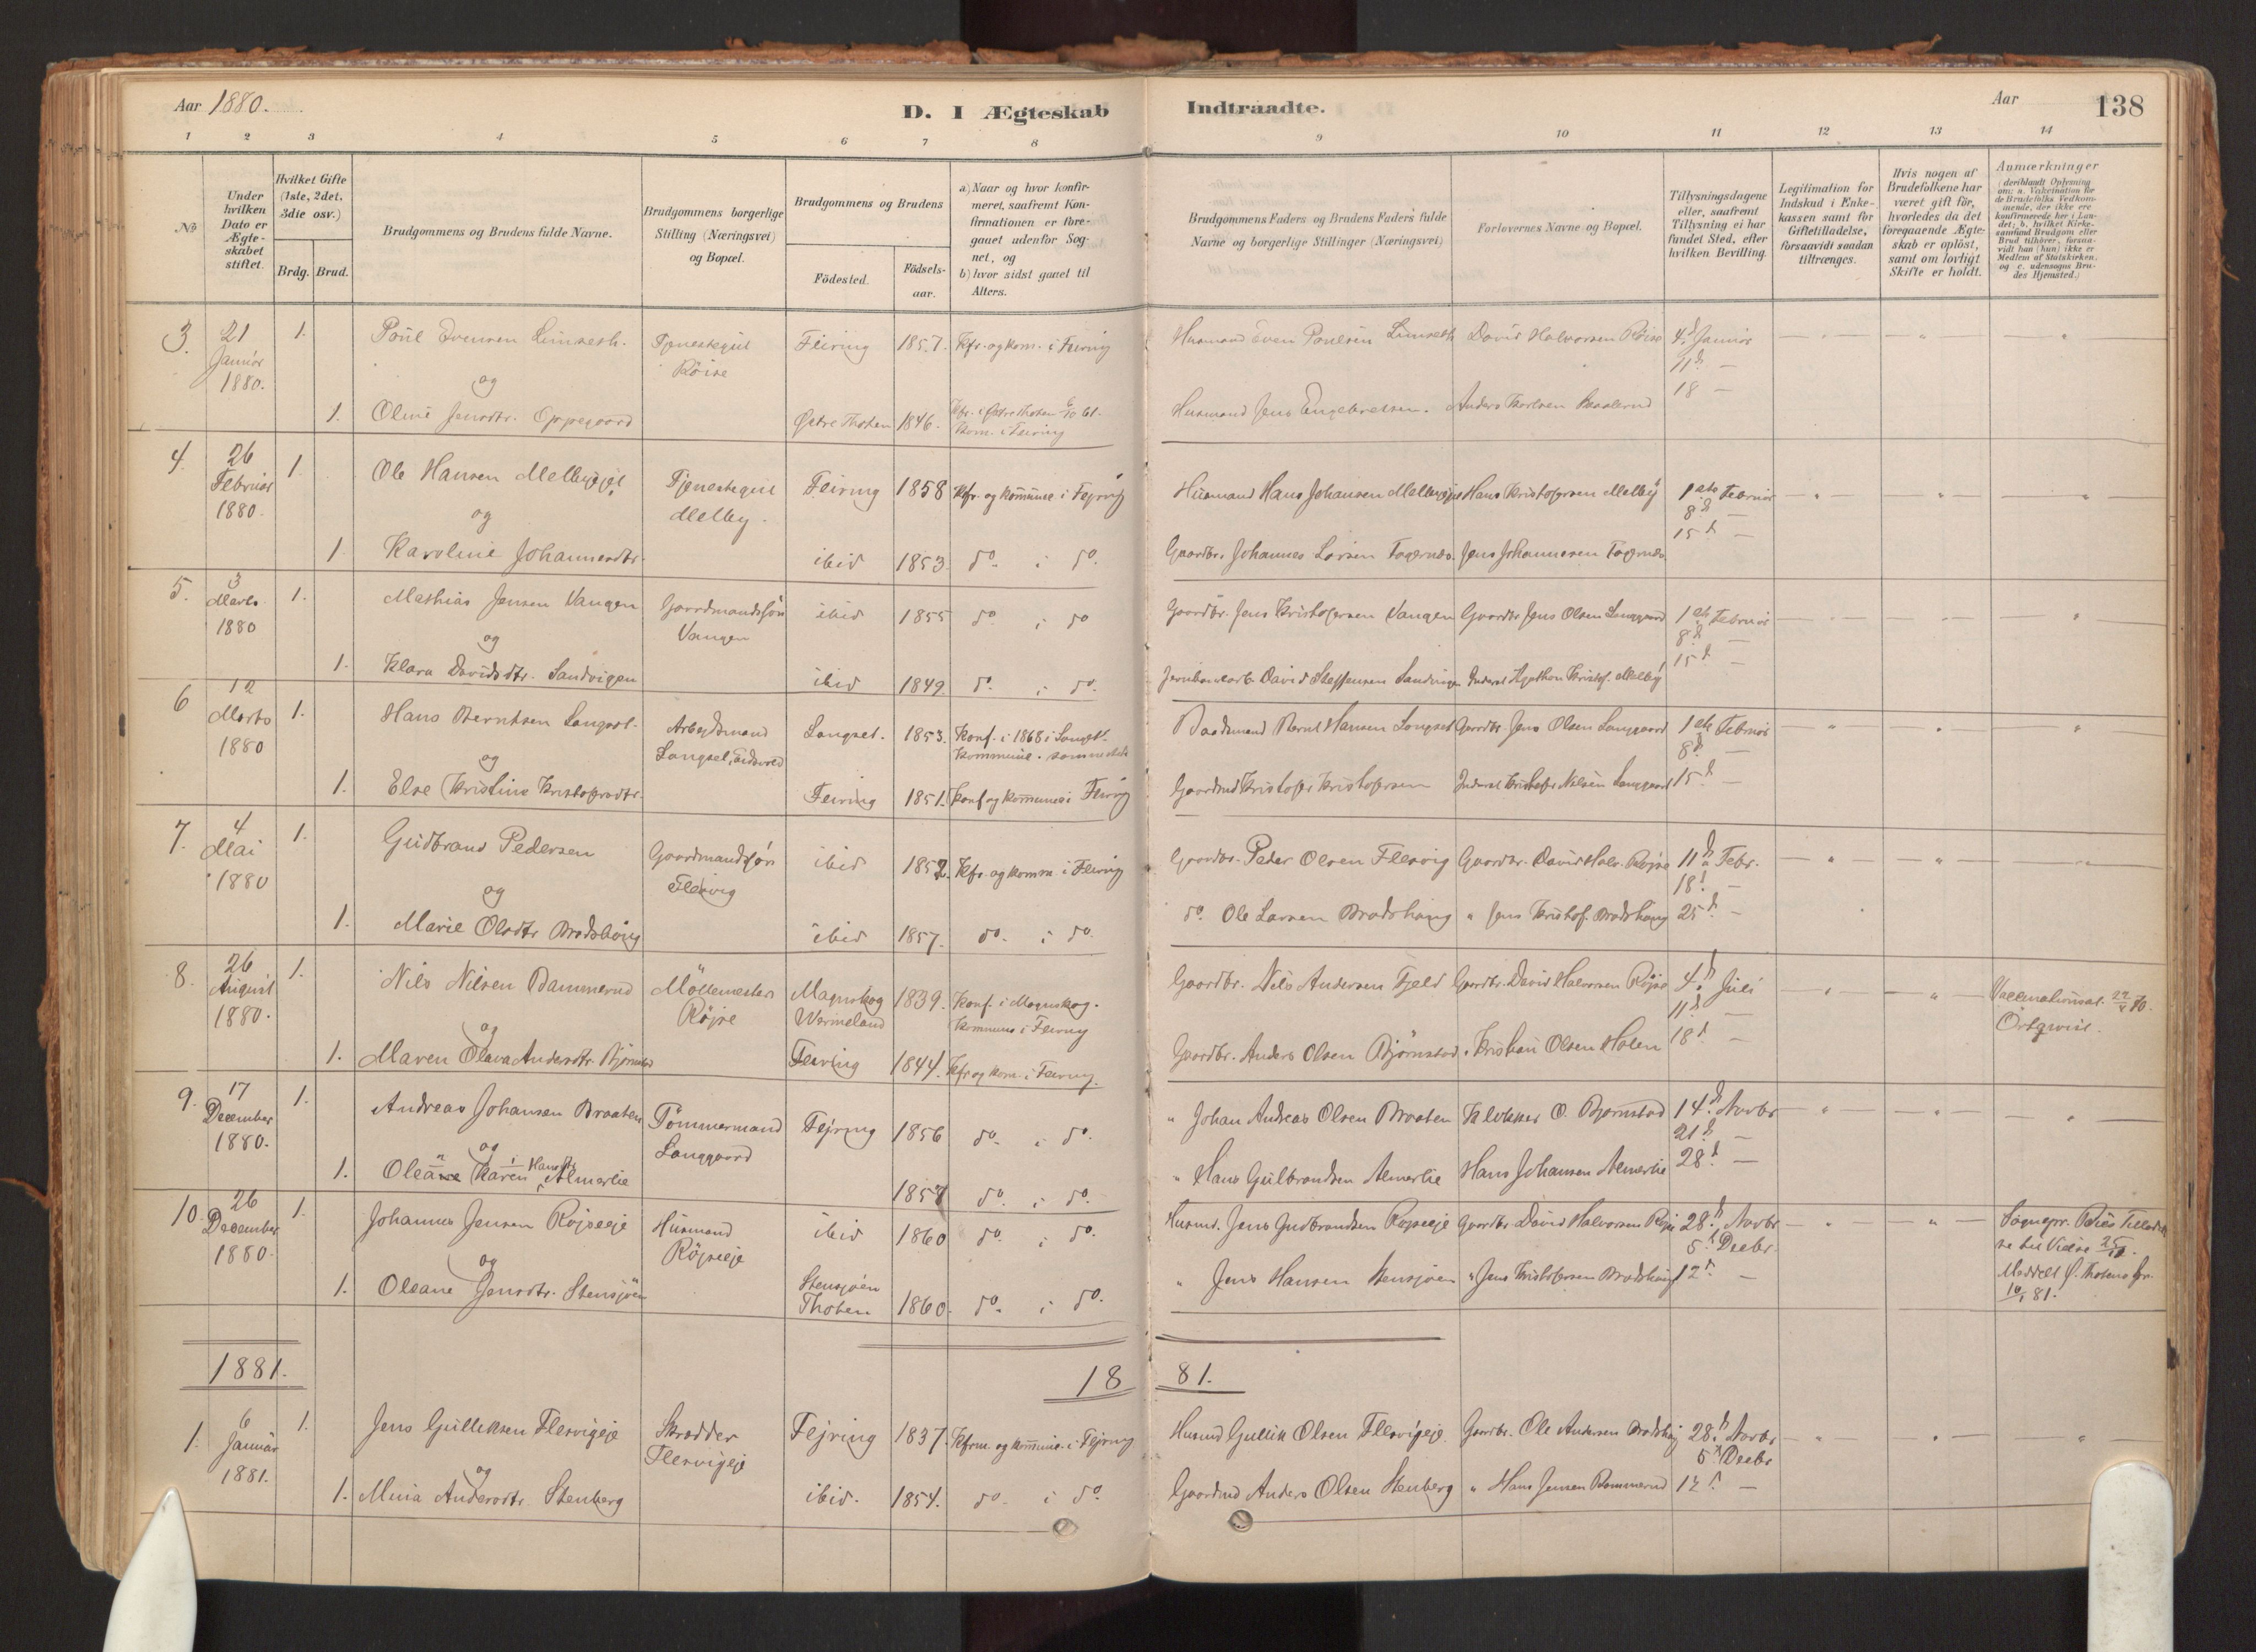 Aar 1880.
D. I Ægteskab Indtraadte.
Aar 138
1 2 3 4 5 6 7 8 9 10 11 12 13 14
№
Under hvilken Dato er Ægte-skabet stiftet.
Hvilket Gifte (1ste, 2det, 3die osv.)
Brdg. Brud.
Brudgommens og Brudens fulde Navne.
Brudgommens borgerlige Stilling (Næringsvei) og Bopæl.
Brudgommens og Brudens
Födested.
Födsels-aar.
a) Naar og hvor konfir-meret, saafremt Kon-firmationen er fore-gaaet udenfor Sog-net, og
b) hvor sidst gaaet til Alters.
Brudgommens Faders og Brudens Faders fulde Navne og borgerlige Stillinger (Næringsvei)
Forlovernes Navne og Bopæl.
Tillysningsdagene eller, saafremt Tillysning ei har fundet Sted, efter hvilken Bevilling.
Legitimation for Indskud i Enke-kassen samt for Giftetilladelse, forsaavidt saadan tiltrænges.
Hvis nogen af Brudefolkene har været gift för, hvorledes da det foregaaende Ægte-skab er oplöst, samt om lovligt Skifte er holdt.
Anmærkninger
(deriblandt Oplysning om: a. Vakcination for de Brudefolks Vedkom-mende, der ikke ere konfirmerede her i Lan-det; b. hvilket Kirke-samfund Brudgom eller Brud tilhörer, forsaa-vidt han (hun) ikke er Medlem af Statskirken, og c. udensogns Bru-des Hjemsted.)
3. 21 Januar 1880. 1. Paul Evensen Limseth. Tjenestegut Röise Feiring 1857. Kfr. og kom. i Feiring Husmand Even Paulsen Limseth David Halvorsen Röise 4d Januar
og 11d —
1. Oline Jensdtr. Oppegaard Østre Thoten 1846. Kfr. i Østre Thoten 6/10 61. Kom. i Feiring Husmand Jens Engebretsen. Anders 18 —
4. 26 Februar 1880. 1. Ole Hansen Melbyejet Tjenestegut Melby. Feiring 1858 Kfr. og kommune i Fejring Husmand Hans Johansen Melbyejet Hans Kristofersen Melby 1ste Februar
og 8d —
1 Karoline Johannesdtr. ibid 1853. do. i do. Gaardbr. Johannes Larsen Fagernæs. Jens Johannesen Fagernæs 15d —
5. 3 Marts 1880 1. Mathias Jensen Vangen Gaardmandssön Vangen ibid 1855 do i do Gaardbr. Jens Kristofersen Vangen Gaardbr Jens Olsen Langgaard 1ste Februar
og 8d
1. Klara Davidsdtr. Sandvigen ibid 1849 do. i do. David Steffensen Sandvigen Kristof. Melby 15d —
6 12 Marts 1880 1. Hans Berntsen Langset. Arbejdsmand Langset, Eidsvold Langset. 1853. Konf. i 1868 i Langset. Kommune. sammesteds Baadsmand Bernt Hansen Langset Gaardbr. Jens Olsen Langgaard 1ste Februar
og 8d —
1. Else Kristine Kristofersdtr. Feiring 1851. Konf og kommune i Feiring Gaardmd Kristofer Kristofersen Inderst Kristofer Nilsen Langgaard 15d —
7. 4 Mai 1880 1. Gudbrand Pedersen Gaardmandssön Flesvig ibid 1852. Kfr. og komm i Feiring Gaardbr. Peder Olsen Flesvig Gaardbr. David Halv. Röjse 11d Febr.
og 18d —
1. Marie Olsdtr Bradshaug ibid 1857. do. i do. do. Ole Larsen Bradshaug " Jens Kristof. Bradshaug 25d —
8. 26 August 1880. 1. Nils Nilsen Bammerud Möllemester Röjse Magnskog Wermeland 1839. Konf. i Magnskog. Kommune i Feiring Gaardbr. Nils Andersen Fjeld Gaardbr. David Halvorsen Röjse 4d Juli Vaccinationsat.
og 11d —
1. Maren Olava Andersdtr. Björnstad Feiring 1844. Kfr og kom. i Feiring. Gaardbr. Anders Olsen Björnstad " Kristian Olsen Holen 18d —
9. 17 December 1880. 1. Andreas Johansen Braaten Tömmermand Langgaard Fejring 1856 do. i do. " Johan Andreas Olsen Braaten Klokker O. Bjørnstad 14d Novbr
og 21d —
1. Oleane Karen Hansdtr Almerlie 1857 do. i do. " Hans Gulbrandsen Almerlie Hans Johansen Almerlie 28d —
10. 26 December 1880. 1. Johannes Jensen Röjseeje Husmand Röjseeje ibid 1860 do. i do. Husmd. Jens Gudbrandsen Röjseeje Gaardbr David Halvorsen Röjse 28d Novbr Sognepr.
og 5d Decbr. til Vielse 25/12.
1. Oleane Jensdtr. Stensjöen Stensjöen Thoten 1860. do. i do. " Jens Hansen Stensjöen " Jens Kristofersen Bradshaug 12d — Meddelt Ø. Thotens Spr. 10/1 81.
1881. 18 81.
1. 6 Januar 1881. 1. Jens Gulliksen Flesvigeje Skrædder Flesvigeje Fejring 1837. Kfrm. og kommune. i Fejring Husmd Gullik Olsen Flesvigeje Gaardbr. Ole Andersen Bradshaug 28d Novbr
og 5d Decbr
1. Mina Andersdtr. Stenberg ibid. 1854. do. i do. Gaardmd Anders Olsen Stenberg " Hans Jensen Bammerud 12d —